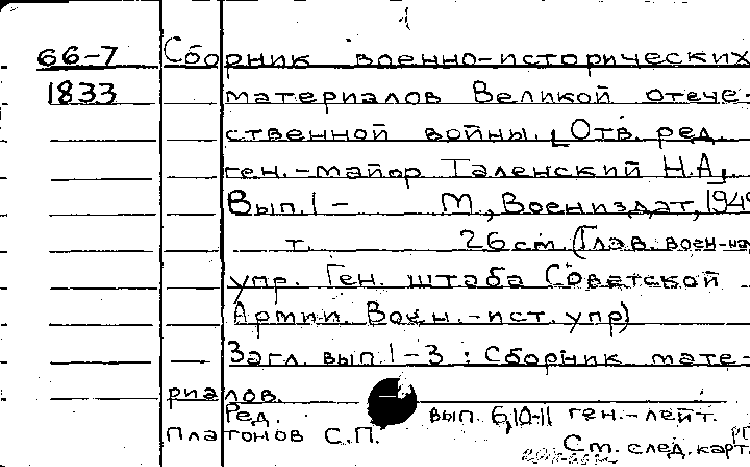 1
66-7 Сборник военно-исторических
1833 материалов Великой отече-
ственной войны. [Отв. ред.
ген.-майор Таленский Н.А.
Вып. 1 - М., Воениздат, 1949
т. 26 см. (Глав. воен-на
упр. Ген. штаба Советской
Армии. Воен.-ист. упр)
Загл. вып. 1-3 : Сборник мате-
риалов.
Ред. вып. 6,10-11 ген.-лейт.
Платонов С.П.
См. след. карт